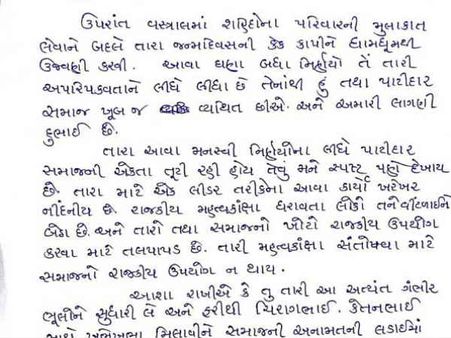 ઉપરાંત વસ્ત્રાલમાં શહિદોના પરિવારની મુલાકાત
લેવાને બદલે તારા જન્મદિવસની કેક કાપીને ધામધૂમથી
ઉજવણી કરવી. આવા ઘણા બધા નિર્ણયો તેં તારી
અપરિપકવતાને લીધે લીધા છે તેનાથી હું તથા પાટીદાર
સમાજ ખૂબ જ વ્યથિત છીએ. અને અમારી લાગણી
દુભાઈ છે.
તારા આવા મનસ્વી નિર્ણયોના લીધે પાટીદાર
સમાજની એકતા તૂટી રહી હોય તેવું મને સ્પષ્ટ પણે દેખાય
છે. તારા માટે એક લીડર તરીકેના આવા કાર્યો ખરેખર
નીંદનીય છે. રાજકીય મહત્વકાંક્ષા ધરાવતા લોકો તને વીંટળાઈને
બેઠા છે. અને તારો તથા સમાજનો ખોટો રાજકીય ઉપયોગ
કરવા માટે તલપાપડ છે. તારી મહત્વકાંક્ષા સંતોષવા માટે
સમાજનો રાજકીય ઉપયોગ ન થાય.
આશા રાખીએ કે તુ તારી આ અત્યંત ગંભીર
ભૂલોને સુધારી લે અને ફરીથી ચિરાગભાઈ. કેતનભાઈ
ખભેખભા મિલાવીને સમાજની અનામતની લડાઈમાં